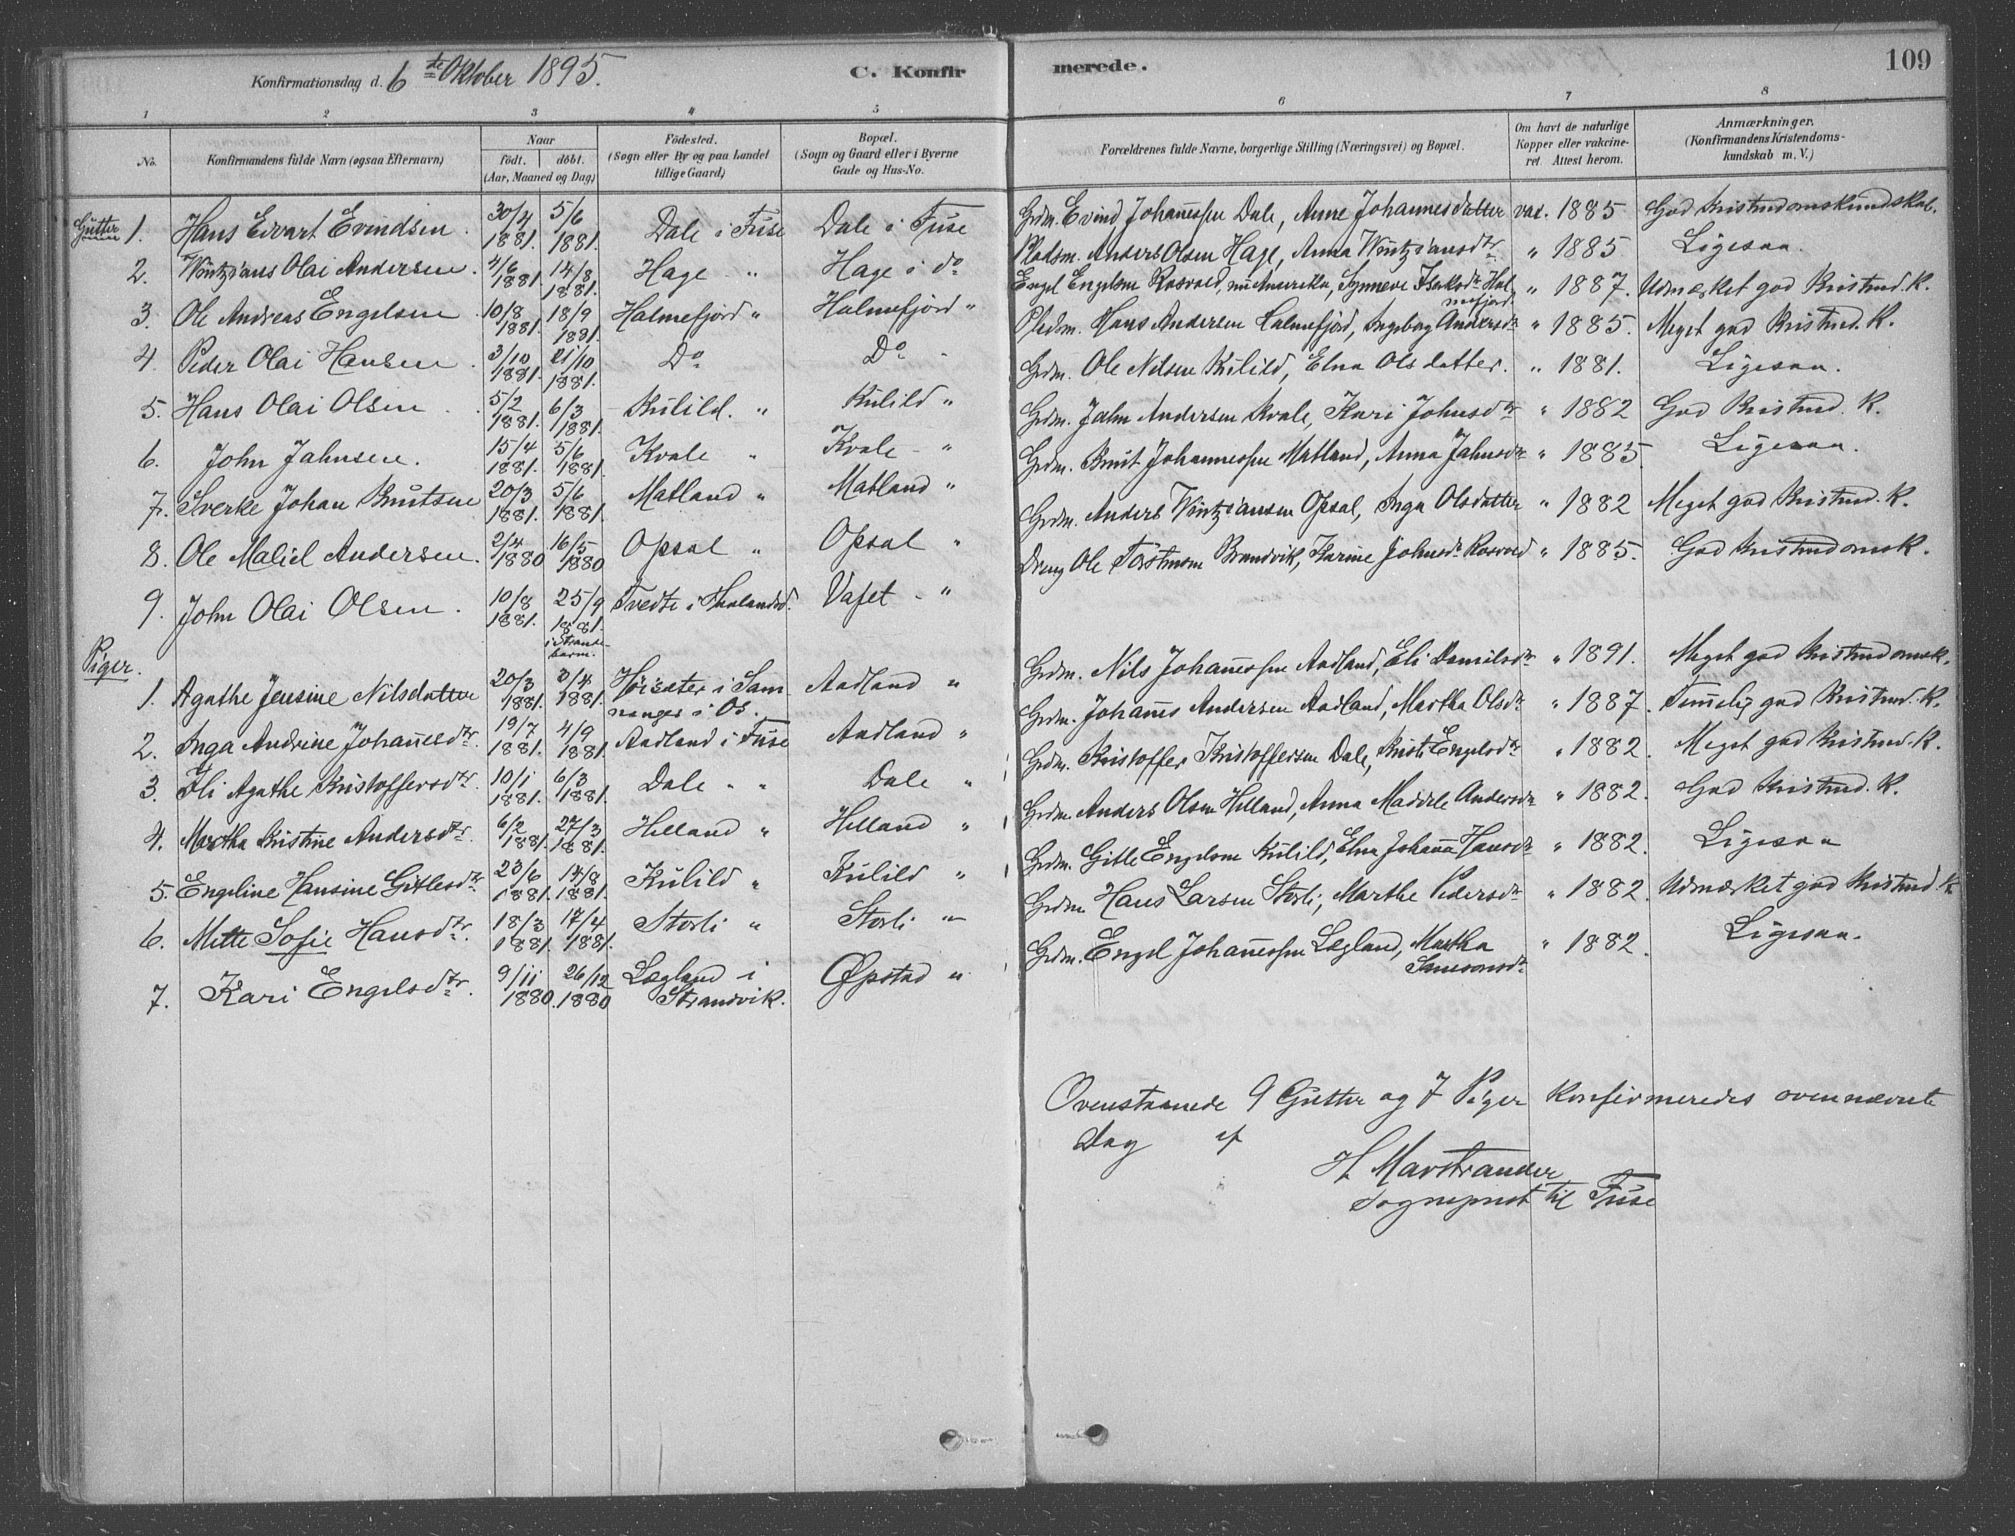 Konfirmationsdag d. 6te Oktober 1895. C. Konfirmerede. 109
1 2 3 4 5 6 7 8
No. Konfirmandens fulde Navn (ogsaa Efternavn) Naar födt. döbt. (Aar, Maaned og Dag) Födested. (Sogn eller By og paa Landet tillige Gaard) Bopæl. (Sogn og Gaard eller i Byerne Gade og Hus-No. Forældrenes fulde Navne, borgerlige Stilling (Næringsvei) og Bopæl. Om havt de naturlige Kopper eller vakcineret. Attest herom. Anmærkninger. (Konfirmandens Kristendomskundskab m. V.)
Gutter 1. Hans Edvart Evindsen. 30/4 1881. 5/6 1881. Dale i Fuse Dale i Fuse Grdm. Evind Johannessen Dale, Anne Johannesdatter vac. 1885 God Kristendomskundskab.
2. Wintzsans Olai Andersen. 4/6 1881. 14/8 1881. Hage " Hage i do Pladsm. Anders Olsen Hage, Anna Wintzsansdtr " 1885 Ligesaa.
3. Ole Andreas Engelsen 10/8 1881. 18/9 1881. Halmefjord " Halmefjord " Engel Engelsen Rosvold, nu Amerika, Synneve Iseksdtr Halmefjord " 1887. Udmærket god Kristend. K.
4. Peder Olai Hansen. 3/10 1881. 21/10 1881. Do Do Pladsm. Hans Andersen Halmefjord, Ingeborg Andersdtr " 1885. Meget god Kristend. K.
5. Hans Olai Olsen. 5/2 1881. 6/3 1881. Kulild. " Kulild " Grdm. Ole Nilsen Kulild, Elna Olsdatter. " 1881. Ligesaa.
6. John Jahnsen. 15/4 1881. 5/6 1881. Kvale " Kvale " Grdm. Jahn Andersen Kvale, Kari Johnsdtr " 1882 God Kristend. K.
7. Sverke Johan Knutsen 20/3 1881. 5/6 1881. Matland " Matland " Grdm. Knut Johannessen Matland, Anna Jahnsdtr " 1885. Ligesaa.
8. Ole Maliel Andersen. 2/4 1880 16/5 1880 Opsal " Opsal " Grdm. Anders Wintzsansen Opsal, Inga Olsdatter " 1882 Meget god Kristend. K.
9. John Olai Olsen. 10/8 1881. 25/9 1881. i Strandebarm. Tvedte i Vafet " Dreng Ole Torstensen Brandvik, Karine Johnsdtr Rosvold " 1885. God Kristendomsk.
Piger.
1. Agathe Jensine Nilsdatter 20/3 1881. 3/4 1881. Höisæter i Samnanger i Os. Aadland " Grdm. Nils Johannessen Aadland, Eli Danielsdtr " 1891. Meget god Kristendomsk.
2. Inga Andrine Johannesdtr. 19/7 1881. 4/9 1881. Aadland i Fuse Aadland " Grdm. Johannes Andersen Aadland, Martha Olsdtr " 1887. Temelig god Kristend. K.
3. Eli Agathe Kristoffersdtr. 10/1 1881. 6/3 1881. Dale " Dale " Grdm. Kristoffer Kristoffersen Dale, Kristi Engelsdtr " 1882. Meget god Kristend. K.
4. Martha Kristine Andersdtr. 6/2 1881. 27/3 1881. Helland " Helland " Grdm. Anders Olsen Helland, Anna Madele Andersdtr " 1882. God Kristend. K.
5. Engeline Hansine Gitlesdtr. 23/6 1881. 14/8 1881. Kulild " Kulild " Grdm. Gitle Engelsen Kulild, Elna Johanna Hansdtr " 1882. Ligesaa
6. Mette Sofie Hansdtr. 18/3 1881. 17/4 1881. Storli " Storli " Grdm. Hans Larsen Storli, Marthe Pedersdtr " 1882. Udmærket god Kristend. K
7. Kari Engelsdtr. 9/11 1880. 26/12 1880 Lægland i Strandvik. Öpstad " Grdm. Engel Johannessen Lægland, Martha Samsonsdtr " 1882. Ligesaa.
Ovenstaaende 9 Gutter og 7 Piger konfirmeredes ovennævnte
Dag af
H. Marstrander
Sogneprest til Fuse